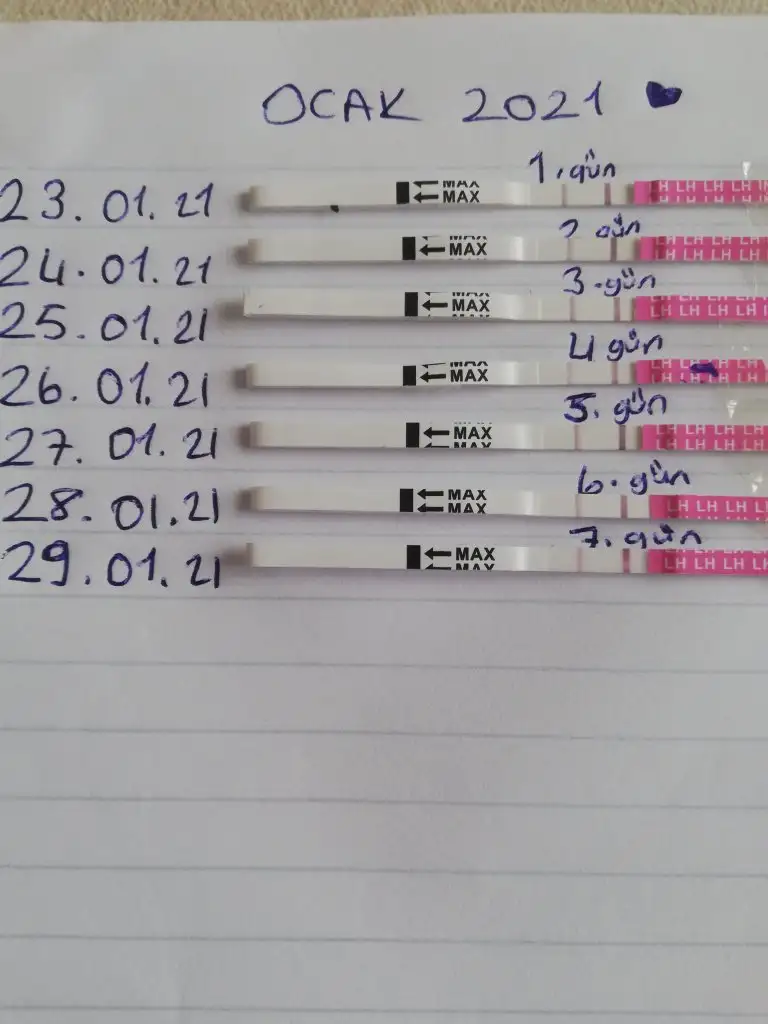 OCAK 2021
1. gün
23.01.21 MAX MAX LH LH LH LH
2 gün
24.01.21 MAX MAX LH LH LH LH
3. gün
25.01.21 MAX MAX LH LH LH LH
4 gün
26.01.21 MAX MAX LH LH LH LH
5. gün
27.01.21 MAX MAX LH LH LH LH
6. gün
28.01.21 MAX MAX LH LH LH
7. gün
29.01.21 MAX MAX LH LH LH LH